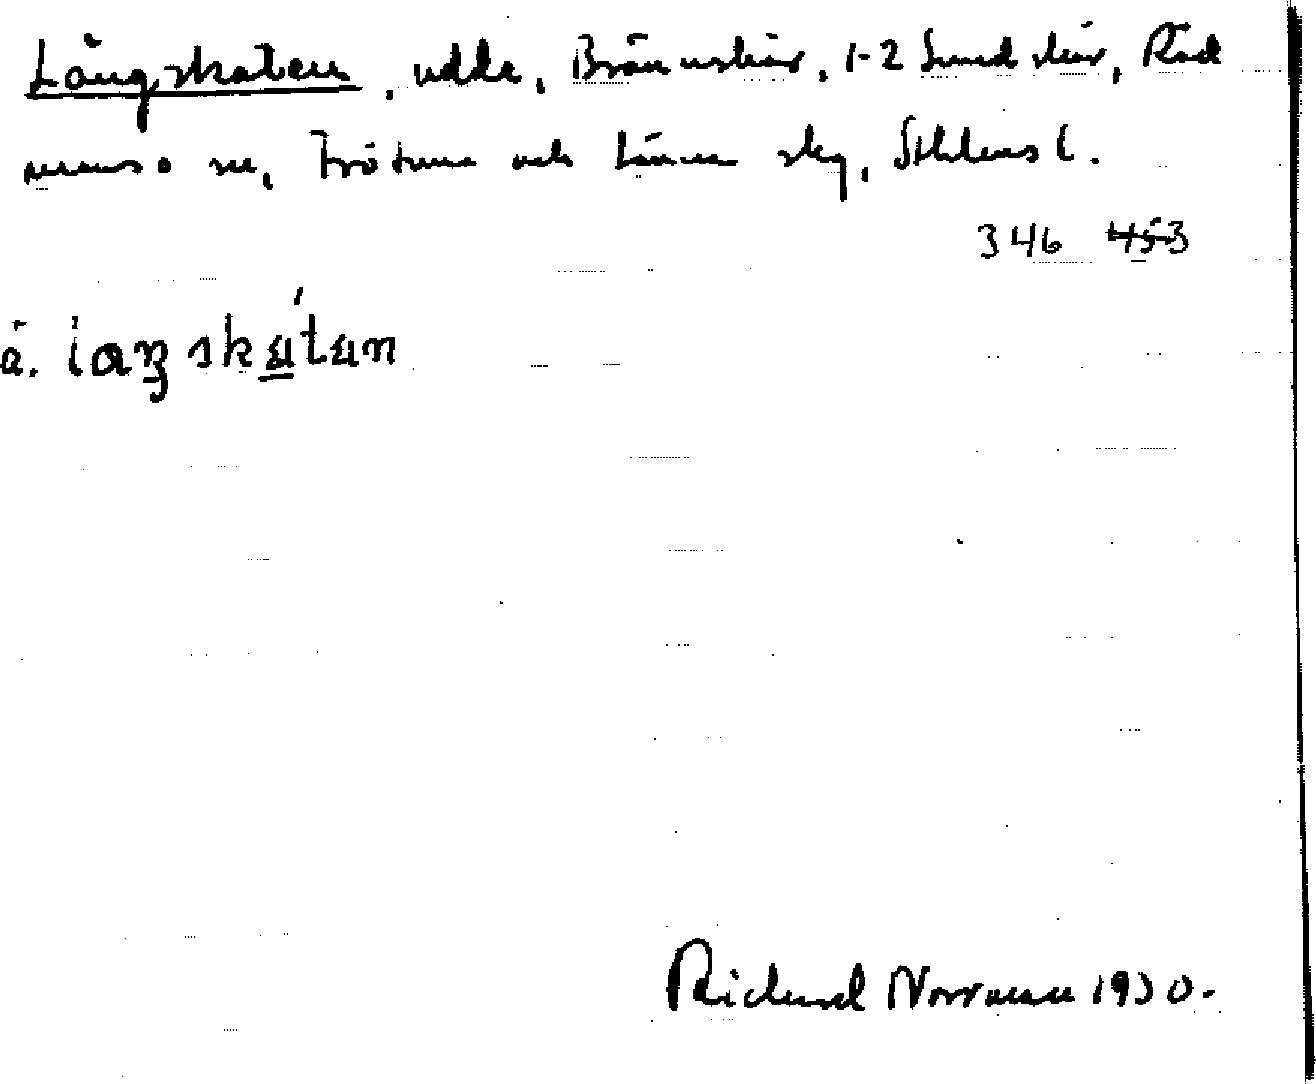 Långskaten, udde, Brännskär, 1-2 Sundskär, Råd
manso sn, Frötuna och Länna sky, Sthlms l.
346 453
å. laŋskatan
Richard Norrman 1930.